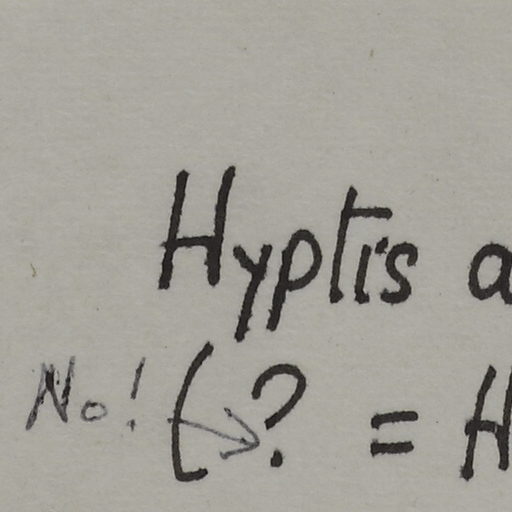 Hyptis a
No! (? = H